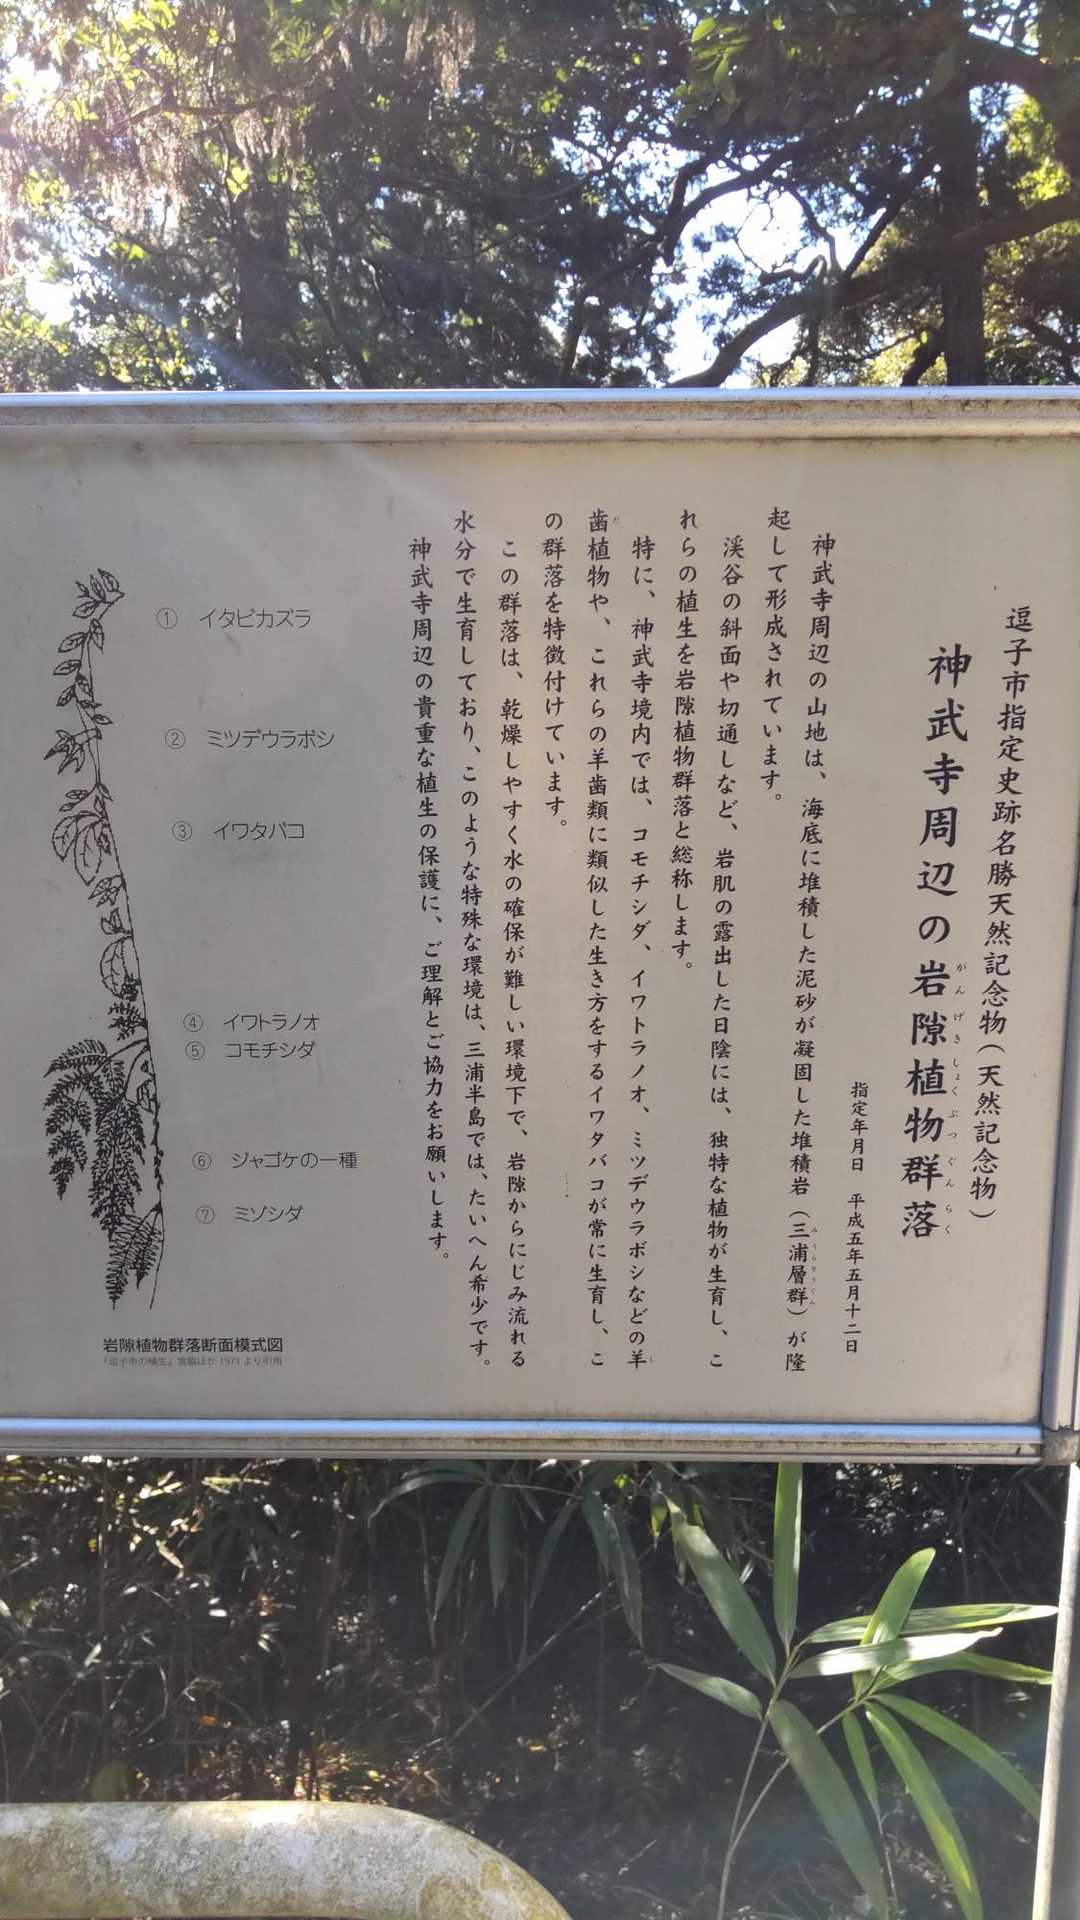 逗子市指定史跡名勝天然記念物(天然記念物)
神武寺周辺の岩隙植物群落
がんげきしょくぶつぐんらく
指定年月日 平成五年五月十二日
神武寺周辺の山地は、海底に堆積した泥砂が凝固した堆積岩(三浦層群)が隆
みうらそうぐん
起して形成されています。
渓谷の斜面や切通しなど、岩肌の露出した日陰には、独特な植物が生育し、こ
れらの植生を岩隙植物群落と総称します。
特に、神武寺境内では、コモチシダ、イワトラノオ、ミツデウラボシなどの羊
し
歯植物や、これらの羊歯類に類似した生き方をするイワタバコが常に生育し、こ
だ
の群落を特徴付けています。
この群落は、乾燥しやすく水の確保が難しい環境下で、岩隙からにじみ流れる
水分で生育しており、このような特殊な環境は、三浦半島では、たいへん希少です。
神武寺周辺の貴重な植生の保護に、ご理解とご協力をお願いします。
① イタビカズラ
② ミツデウラボシ
③ イワタバコ
④ イワトラノオ
⑤ コモチシダ
⑥ ジャゴケの一種
⑦ ミゾシダ
岩隙植物群落断面模式図
『逗子市の植生』宮脇ほか 1971 より引用